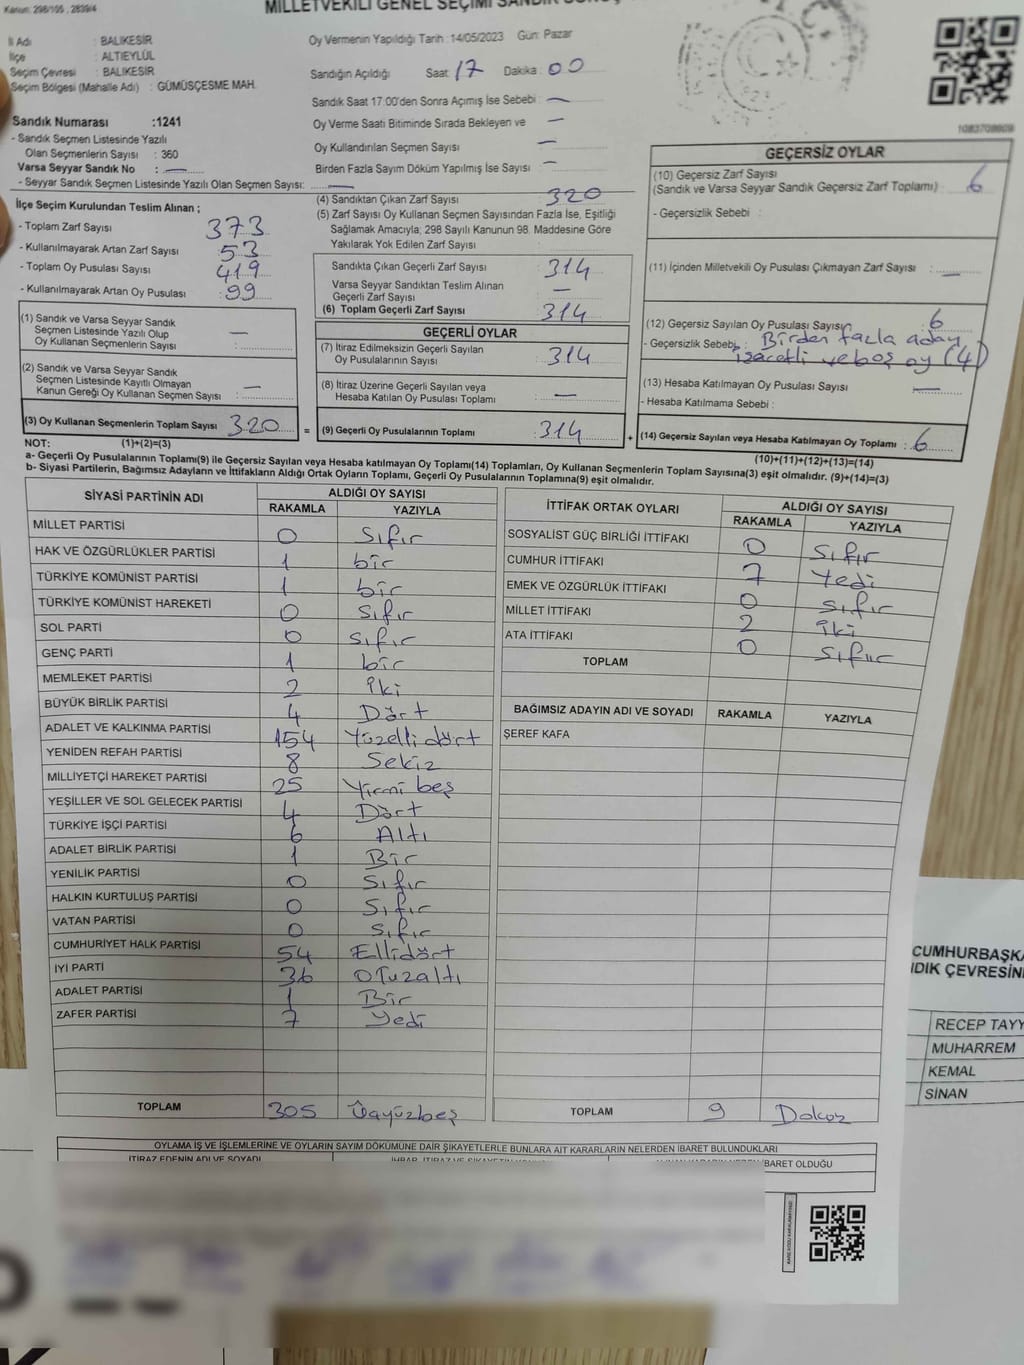 Kanun: 298/105 , 2839/4
MİLLETVEKİLİ GENEL SEÇİMİ SANDIK
İl Adı : BALIKESİR
İlçe : ALTIEYLÜL
Seçim Çevresi : BALIKESİR
Seçim Bölgesi (Mahalle Adı) : GÜMÜŞÇEŞME MAH.
Oy Vermenin Yapıldığı Tarih : 14/05/2023 Gün: Pazar
Sandığın Açıldığı Saat: 17 Dakika : 00
Sandık Saat 17:00'den Sonra Açımış İse Sebebi : —
Oy Verme Saati Bitiminde Sırada Bekleyen ve —
Oy Kullandırılan Seçmen Sayısı : —
Birden Fazla Sayım Döküm Yapılmış İse Sayısı : —
Sandık Numarası :1241
- Sandık Seçmen Listesinde Yazılı
Olan Seçmenlerin Sayısı : 360
Varsa Seyyar Sandık No : —
- Seyyar Sandık Seçmen Listesinde Yazılı Olan Seçmen Sayısı: —
İlçe Seçim Kurulundan Teslim Alınan ;
- Toplam Zarf Sayısı : 373
- Kullanılmayarak Artan Zarf Sayısı : 53
- Toplam Oy Pusulası Sayısı : 419
- Kullanılmayarak Artan Oy Pusulası : 99
(1) Sandık ve Varsa Seyyar Sandık
Seçmen Listesinde Yazılı Olup
Oy Kullanan Seçmenlerin Sayısı : —
(2) Sandık ve Varsa Seyyar Sandık
Seçmen Listesinde Kayıtlı Olmayan
Kanun Gereği Oy Kullanan Seçmen Sayısı : —
(3) Oy Kullanan Seçmenlerin Toplam Sayısı : 320
(4) Sandıktan Çıkan Zarf Sayısı : 320
(5) Zarf Sayısı Oy Kullanan Seçmen Sayısından Fazla İse, Eşitliği
Sağlamak Amacıyla; 298 Sayılı Kanunun 98. Maddesine Göre
Yakılarak Yok Edilen Zarf Sayısı :
Sandıkta Çıkan Geçerli Zarf Sayısı : 314
Varsa Seyyar Sandıktan Teslim Alınan
Geçerli Zarf Sayısı : —
(6) Toplam Geçerli Zarf Sayısı : 314
GEÇERLİ OYLAR
(7) İtiraz Edilmeksizin Geçerli Sayılan
Oy Pusulalarının Sayısı : 314
(8) İtiraz Üzerine Geçerli Sayılan veya
Hesaba Katılan Oy Pusulası Toplamı : —
= (9) Geçerli Oy Pusulalarının Toplamı : 314 +
1083708609
GEÇERSİZ OYLAR
(10) Geçersiz Zarf Sayısı
(Sandık ve Varsa Seyyar Sandık Geçersiz Zarf Toplamı) : 6
- Geçersizlik Sebebi :
(11) İçinden Milletvekili Oy Pusulası Çıkmayan Zarf Sayısı : —
(12) Geçersiz Sayılan Oy Pusulası Sayısı : 6
- Geçersizlik Sebebi : Birden fazla aday
işaretli ve boş oy (4)
(13) Hesaba Katılmayan Oy Pusulası Sayısı : —
- Hesaba Katılmama Sebebi :
(14) Geçersiz Sayılan veya Hesaba Katılmayan Oy Toplamı : 6
NOT: (1)+(2)=(3)
(10)+(11)+(12)+(13)=(14)
a- Geçerli Oy Pusulalarının Toplamı(9) ile Geçersiz Sayılan veya Hesaba katılmayan Oy Toplamı(14) Toplamları, Oy Kullanan Seçmenlerin Toplam Sayısına(3) eşit olmalıdır. (9)+(14)=(3)
b- Siyasi Partilerin, Bağımsız Adayların ve İttifakların Aldığı Ortak Oyların Toplamı, Geçerli Oy Pusulalarının Toplamına(9) eşit olmalıdır.
SİYASİ PARTİNİN ADI ALDIĞI OY SAYISI
RAKAMLA YAZIYLA
MİLLET PARTİSİ 0 Sıfır
HAK VE ÖZGÜRLÜKLER PARTİSİ 1 bir
TÜRKİYE KOMÜNİST PARTİSİ 1 bir
TÜRKİYE KOMÜNİST HAREKETİ 0 sıfır
SOL PARTİ 0 sıfır
GENÇ PARTİ 1 bir
MEMLEKET PARTİSİ 2 İki
BÜYÜK BİRLİK PARTİSİ 4 Dört
ADALET VE KALKINMA PARTİSİ 154 Yüzellidört
YENİDEN REFAH PARTİSİ 8 Sekiz
MİLLİYETÇİ HAREKET PARTİSİ 25 Yirmi beş
YEŞİLLER VE SOL GELECEK PARTİSİ 4 Dört
TÜRKİYE İŞÇİ PARTİSİ 6 Altı
ADALET BİRLİK PARTİSİ 1 Bir
YENİLİK PARTİSİ 0 Sıfır
HALKIN KURTULUŞ PARTİSİ 0 Sıfır
VATAN PARTİSİ 0 sıfır
CUMHURİYET HALK PARTİSİ 54 Ellidört
İYİ PARTİ 36 Otuzaltı
ADALET PARTİSİ 1 Bir
ZAFER PARTİSİ 7 Yedi
TOPLAM 305 Üçyüzbeş
İTTİFAK ORTAK OYLARI ALDIĞI OY SAYISI
RAKAMLA YAZIYLA
SOSYALİST GÜÇ BİRLİĞİ İTTİFAKI 0 Sıfır
CUMHUR İTTİFAKI 7 Yedi
EMEK VE ÖZGÜRLÜK İTTİFAKI 0 sıfır
MİLLET İTTİFAKI 2 İki
ATA İTTİFAKI 0 Sıfır
TOPLAM
BAĞIMSIZ ADAYIN ADI VE SOYADI RAKAMLA YAZIYLA
ŞEREF KAFA
TOPLAM 9 Dokuz
OYLAMA İŞ VE İŞLEMLERİNE VE OYLARIN SAYIM DÖKÜMÜNE DAİR ŞİKAYETLERLE BUNLARA AİT KARARLARIN NELERDEN İBARET BULUNDUKLARI
İTİRAZ EDENİN ADI VE SOYADI
BARET OLDUĞU
CUMHURBAŞKA
IDIK ÇEVRESİN
RECEP TAYY
MUHARREM
KEMAL
SİNAN